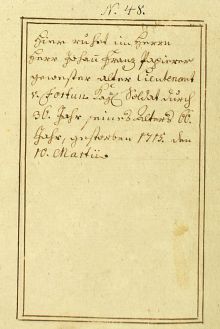 N. 48.
Hier ruhet im Herrn
Herr Johan Franz Papierer
gewester alter Lieutenant
v. Fortun Kays. Soldat durch
36. Jahr seines alters 66.
Jahr, gestorben 1715. den
10. Martii